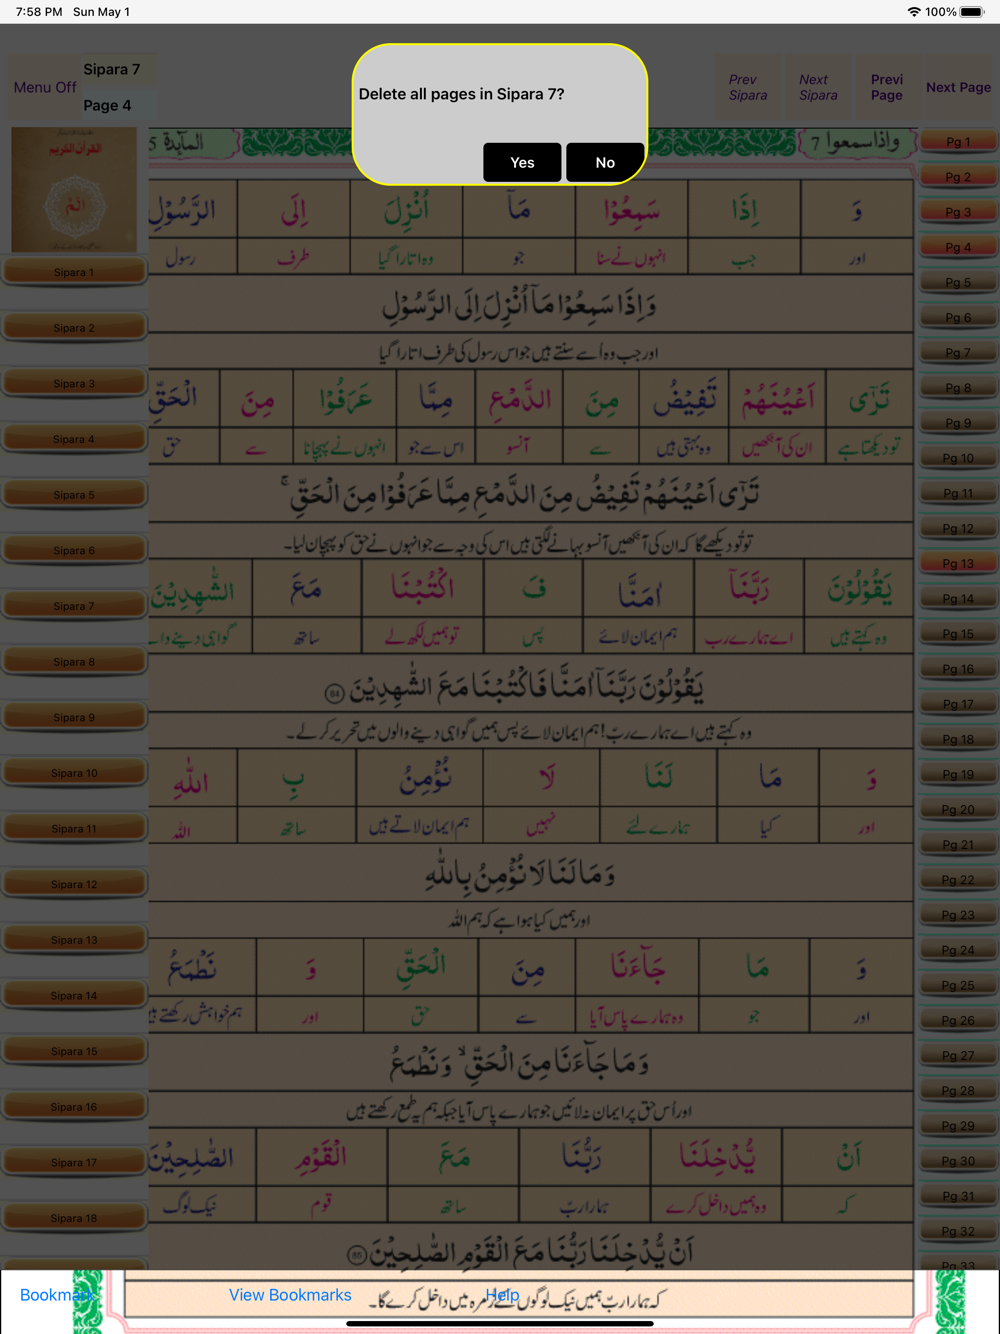 7:58 PM Sun May 1
100%
Menu Off
Sipara 7
Page 4
Delete all pages in Sipara 7?
Yes
No
Prev Sipara
Next Sipara
Previ Page
Next Page
القرآن الكريم
المآىِٕدة 5
واذاسمعوا 7
وَ اِذَا سَمِعُوْا مَاۤ اُنْزِلَ اِلَى الرَّسُوْلِ
اور جب انہوں نے سنا جو وہ اتارا گیا طرف رسول
وَاِذَا سَمِعُوْا مَاۤ اُنْزِلَ اِلَى الرَّسُوْلِ
اور جب وہ اُسے سنتے ہیں جو اس رسول کی طرف اتارا گیا
تَرٰۤى اَعْيُنَهُمْ تَفِيْضُ مِنَ الدَّمْعِ مِمَّا عَرَفُوْا مِنَ الْحَقِّ
تو دیکھتا ہے ان کی آنکھیں وہ بہتی ہیں سے آنسو اس سے جو انہوں نے پہچانا سے حق
تَرٰۤى اَعْيُنَهُمْ تَفِيْضُ مِنَ الدَّمْعِ مِمَّا عَرَفُوْا مِنَ الْحَقِّ ۚ
تو تُو دیکھے گا کہ ان کی آنکھیں آنسو بہانے لگتی ہیں اس کی وجہ سے جو انہوں نے حق کو پہچان لیا۔
يَقُوْلُوْنَ رَبَّنَاۤ اٰمَنَّا فَ اكْتُبْنَا مَعَ الشّٰهِدِيْنَ
وہ کہتے ہیں اے ہمارے رب ہم ایمان لائے پس تو ہمیں لکھ لے ساتھ گواہی دینے والے
يَقُوْلُوْنَ رَبَّنَاۤ اٰمَنَّا فَاكْتُبْنَا مَعَ الشّٰهِدِيْنَ 84
وہ کہتے ہیں اے ہمارے ربّ! ہم ایمان لائے پس ہمیں گواہی دینے والوں میں تحریر کر لے۔
وَ مَا لَنَا لَا نُؤْمِنُ بِ اللّٰهِ
اور کیا ہمارے لئے نہیں ہم ایمان لاتے ہیں ساتھ اللہ
وَمَا لَنَا لَا نُؤْمِنُ بِاللّٰهِ
اور ہمیں کیا ہوا ہے کہ ہم اللہ
وَ مَا جَآءَنَا مِنَ الْحَقِّ وَ نَطْمَعُ
اور جو وہ ہمارے پاس آیا سے حق اور ہم خواہش رکھتے ہی
وَمَا جَآءَنَا مِنَ الْحَقِّ ۙ وَنَطْمَعُ
اور اُس حق پر ایمان نہ لائیں جو ہمارے پاس آیا جبکہ ہم یہ طمع رکھتے ہیں
اَنْ يُّدْخِلَنَا رَبُّنَا مَعَ الْقَوْمِ الصّٰلِحِيْنَ
کہ وہ ہمیں داخل کرے ہمارا ربّ ساتھ قوم نیک لوگ
اَنْ يُّدْخِلَنَا رَبُّنَا مَعَ الْقَوْمِ الصّٰلِحِيْنَ 85
کہ ہمارا ربّ ہمیں نیک لوگوں کے زمرہ میں داخل کرے گا۔
Sipara 1
Sipara 2
Sipara 3
Sipara 4
Sipara 5
Sipara 6
Sipara 7
Sipara 8
Sipara 9
Sipara 10
Sipara 11
Sipara 12
Sipara 13
Sipara 14
Sipara 15
Sipara 16
Sipara 17
Sipara 18
Pg 1
Pg 2
Pg 3
Pg 4
Pg 5
Pg 6
Pg 7
Pg 8
Pg 9
Pg 10
Pg 11
Pg 12
Pg 13
Pg 14
Pg 15
Pg 16
Pg 17
Pg 18
Pg 19
Pg 20
Pg 21
Pg 22
Pg 23
Pg 24
Pg 25
Pg 26
Pg 27
Pg 28
Pg 29
Pg 30
Pg 31
Pg 32
Pg 33
Bookmark
View Bookmarks
Help